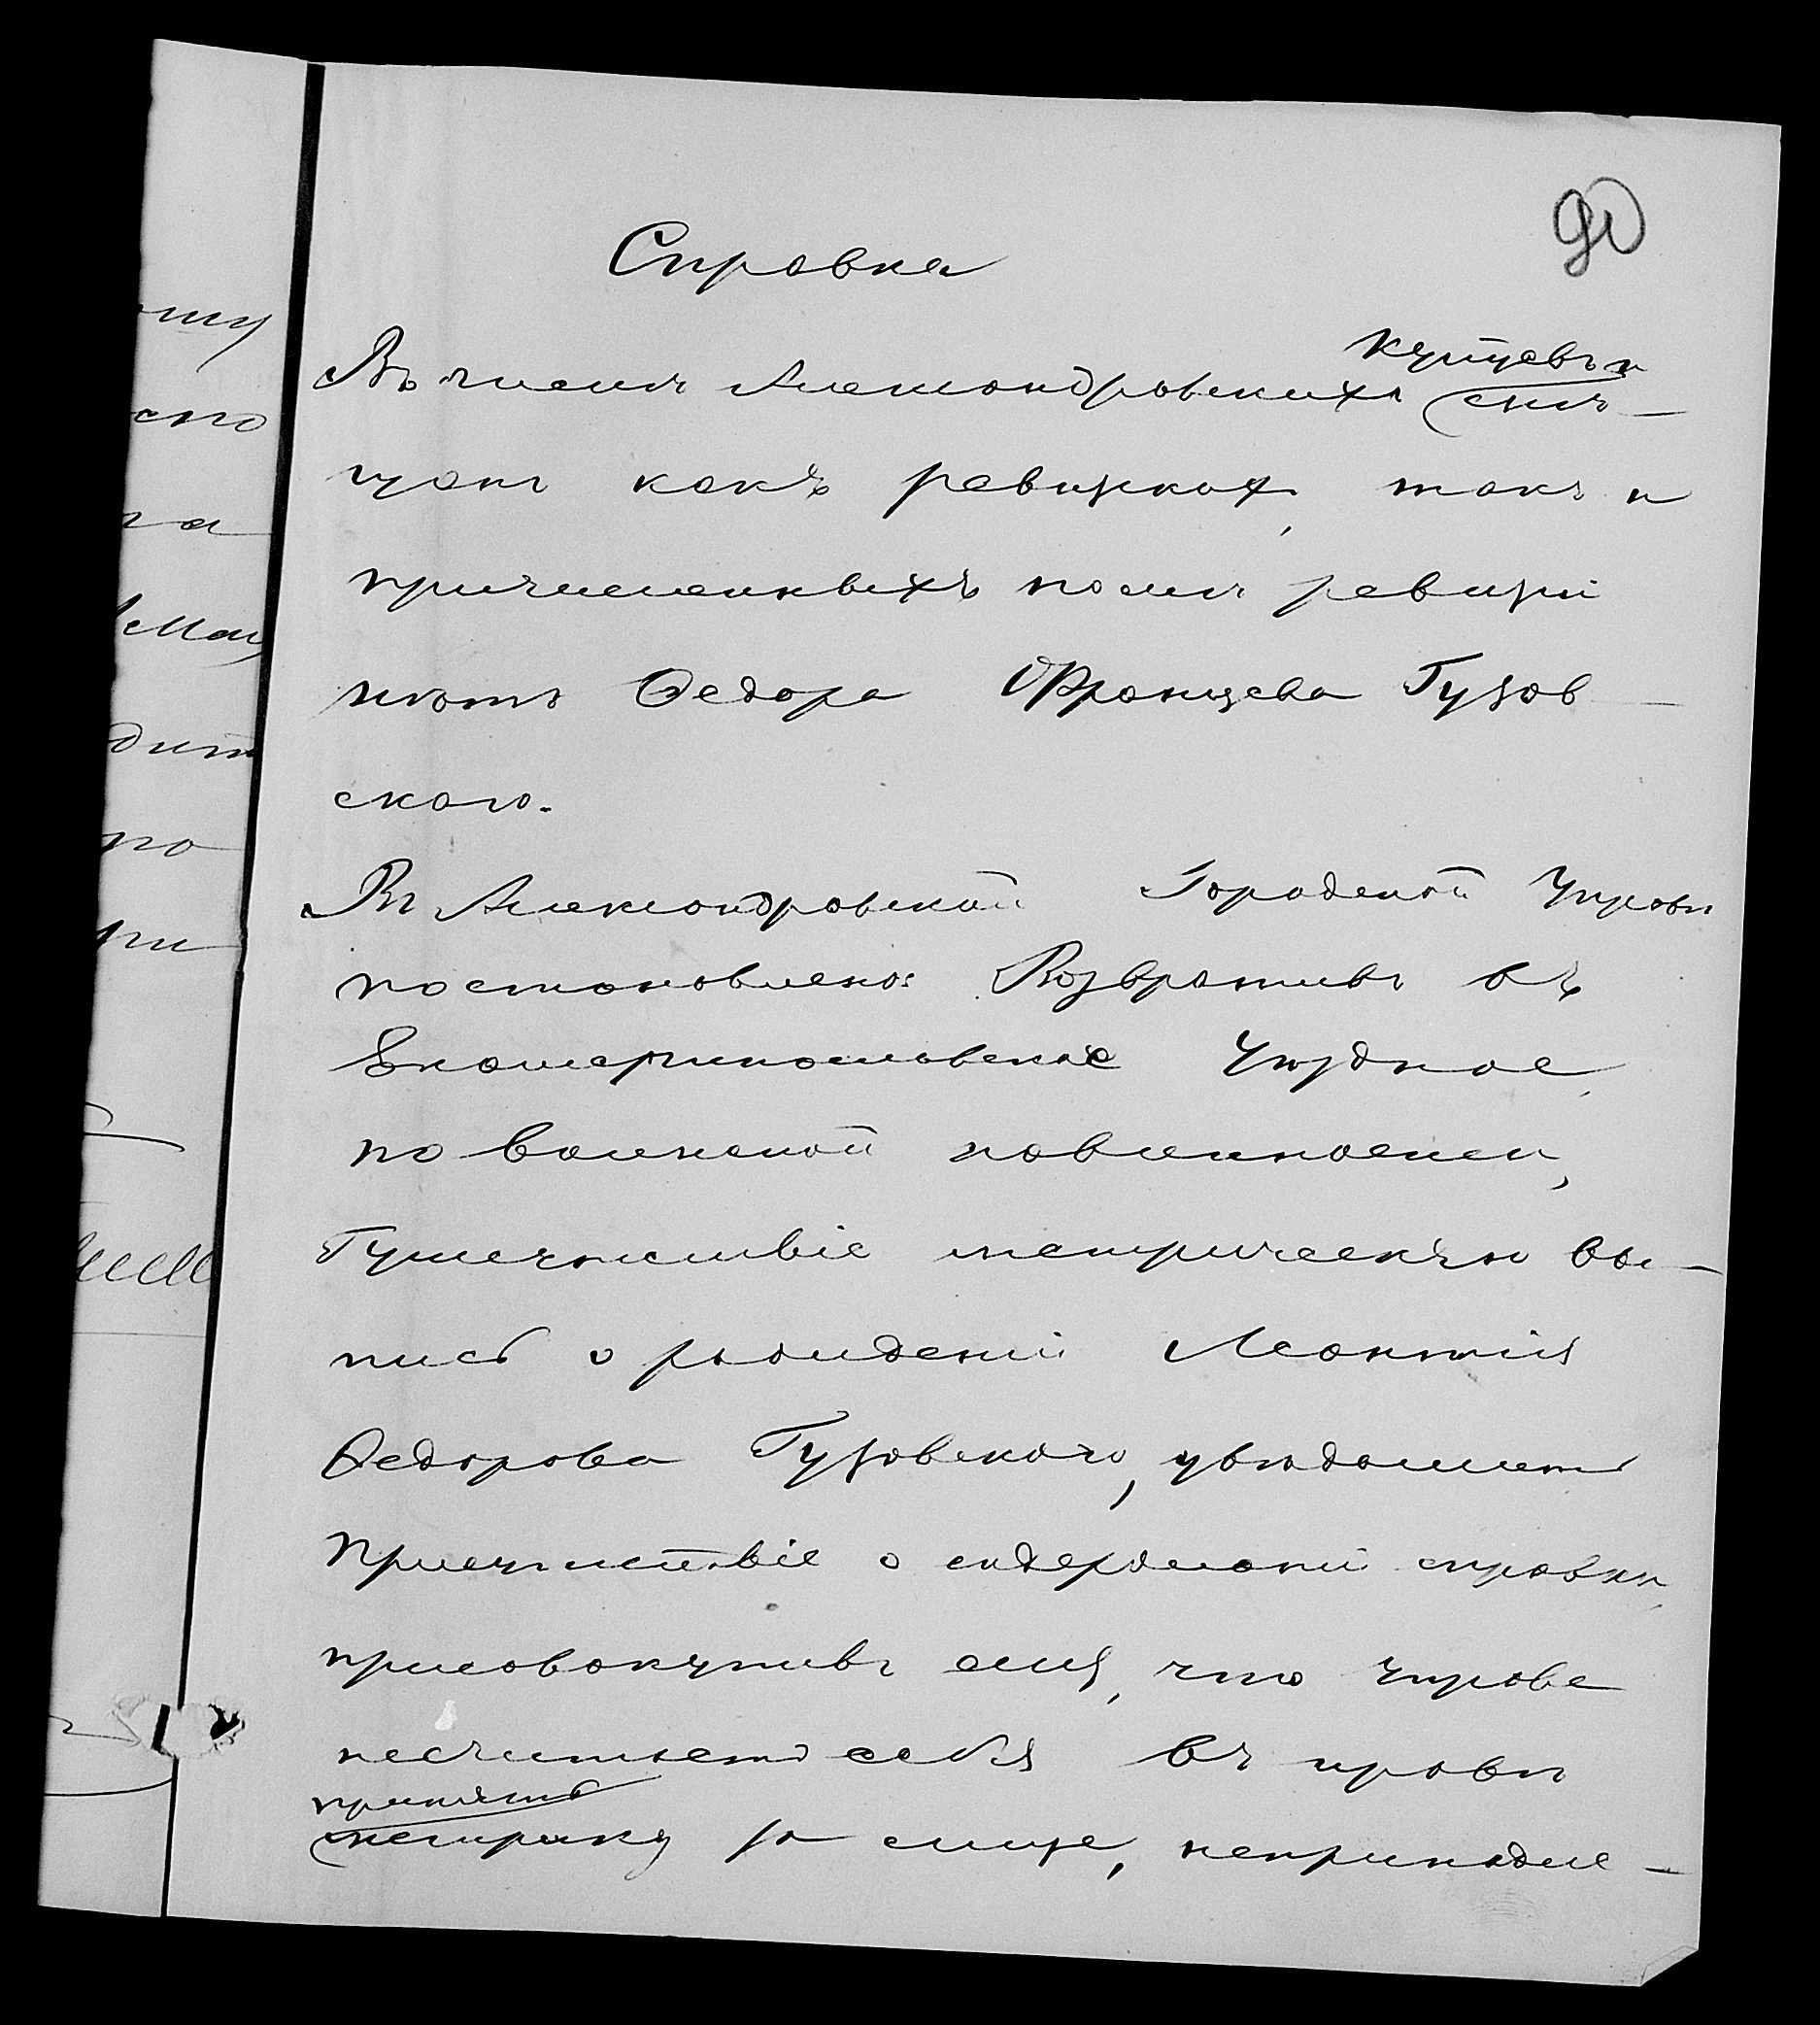 90
Справка
Въ числѣ Александровскихъ купцевъ и мѣ-
щанъ какъ ревизкихъ, такъ и
причисленныхъ послѣ ревизіи
нѣтъ Ѳедора Францева Гузов-
скаго.
Въ Александровской Городской Управѣ
постановлено: Возвративъ въ
Екатеринославское Уѣздное,
по воинской повинности,
Присутствіе метрическую вы-
пись о рожденіи Леонтія
Ѳедорова Гузовскаго, увѣдомить
Присутствіе о содержаніи справки,
присовокупивъ ему, что Управа
несчитаетъ себя въ правѣ
принять
метрику за лице, непринадле-